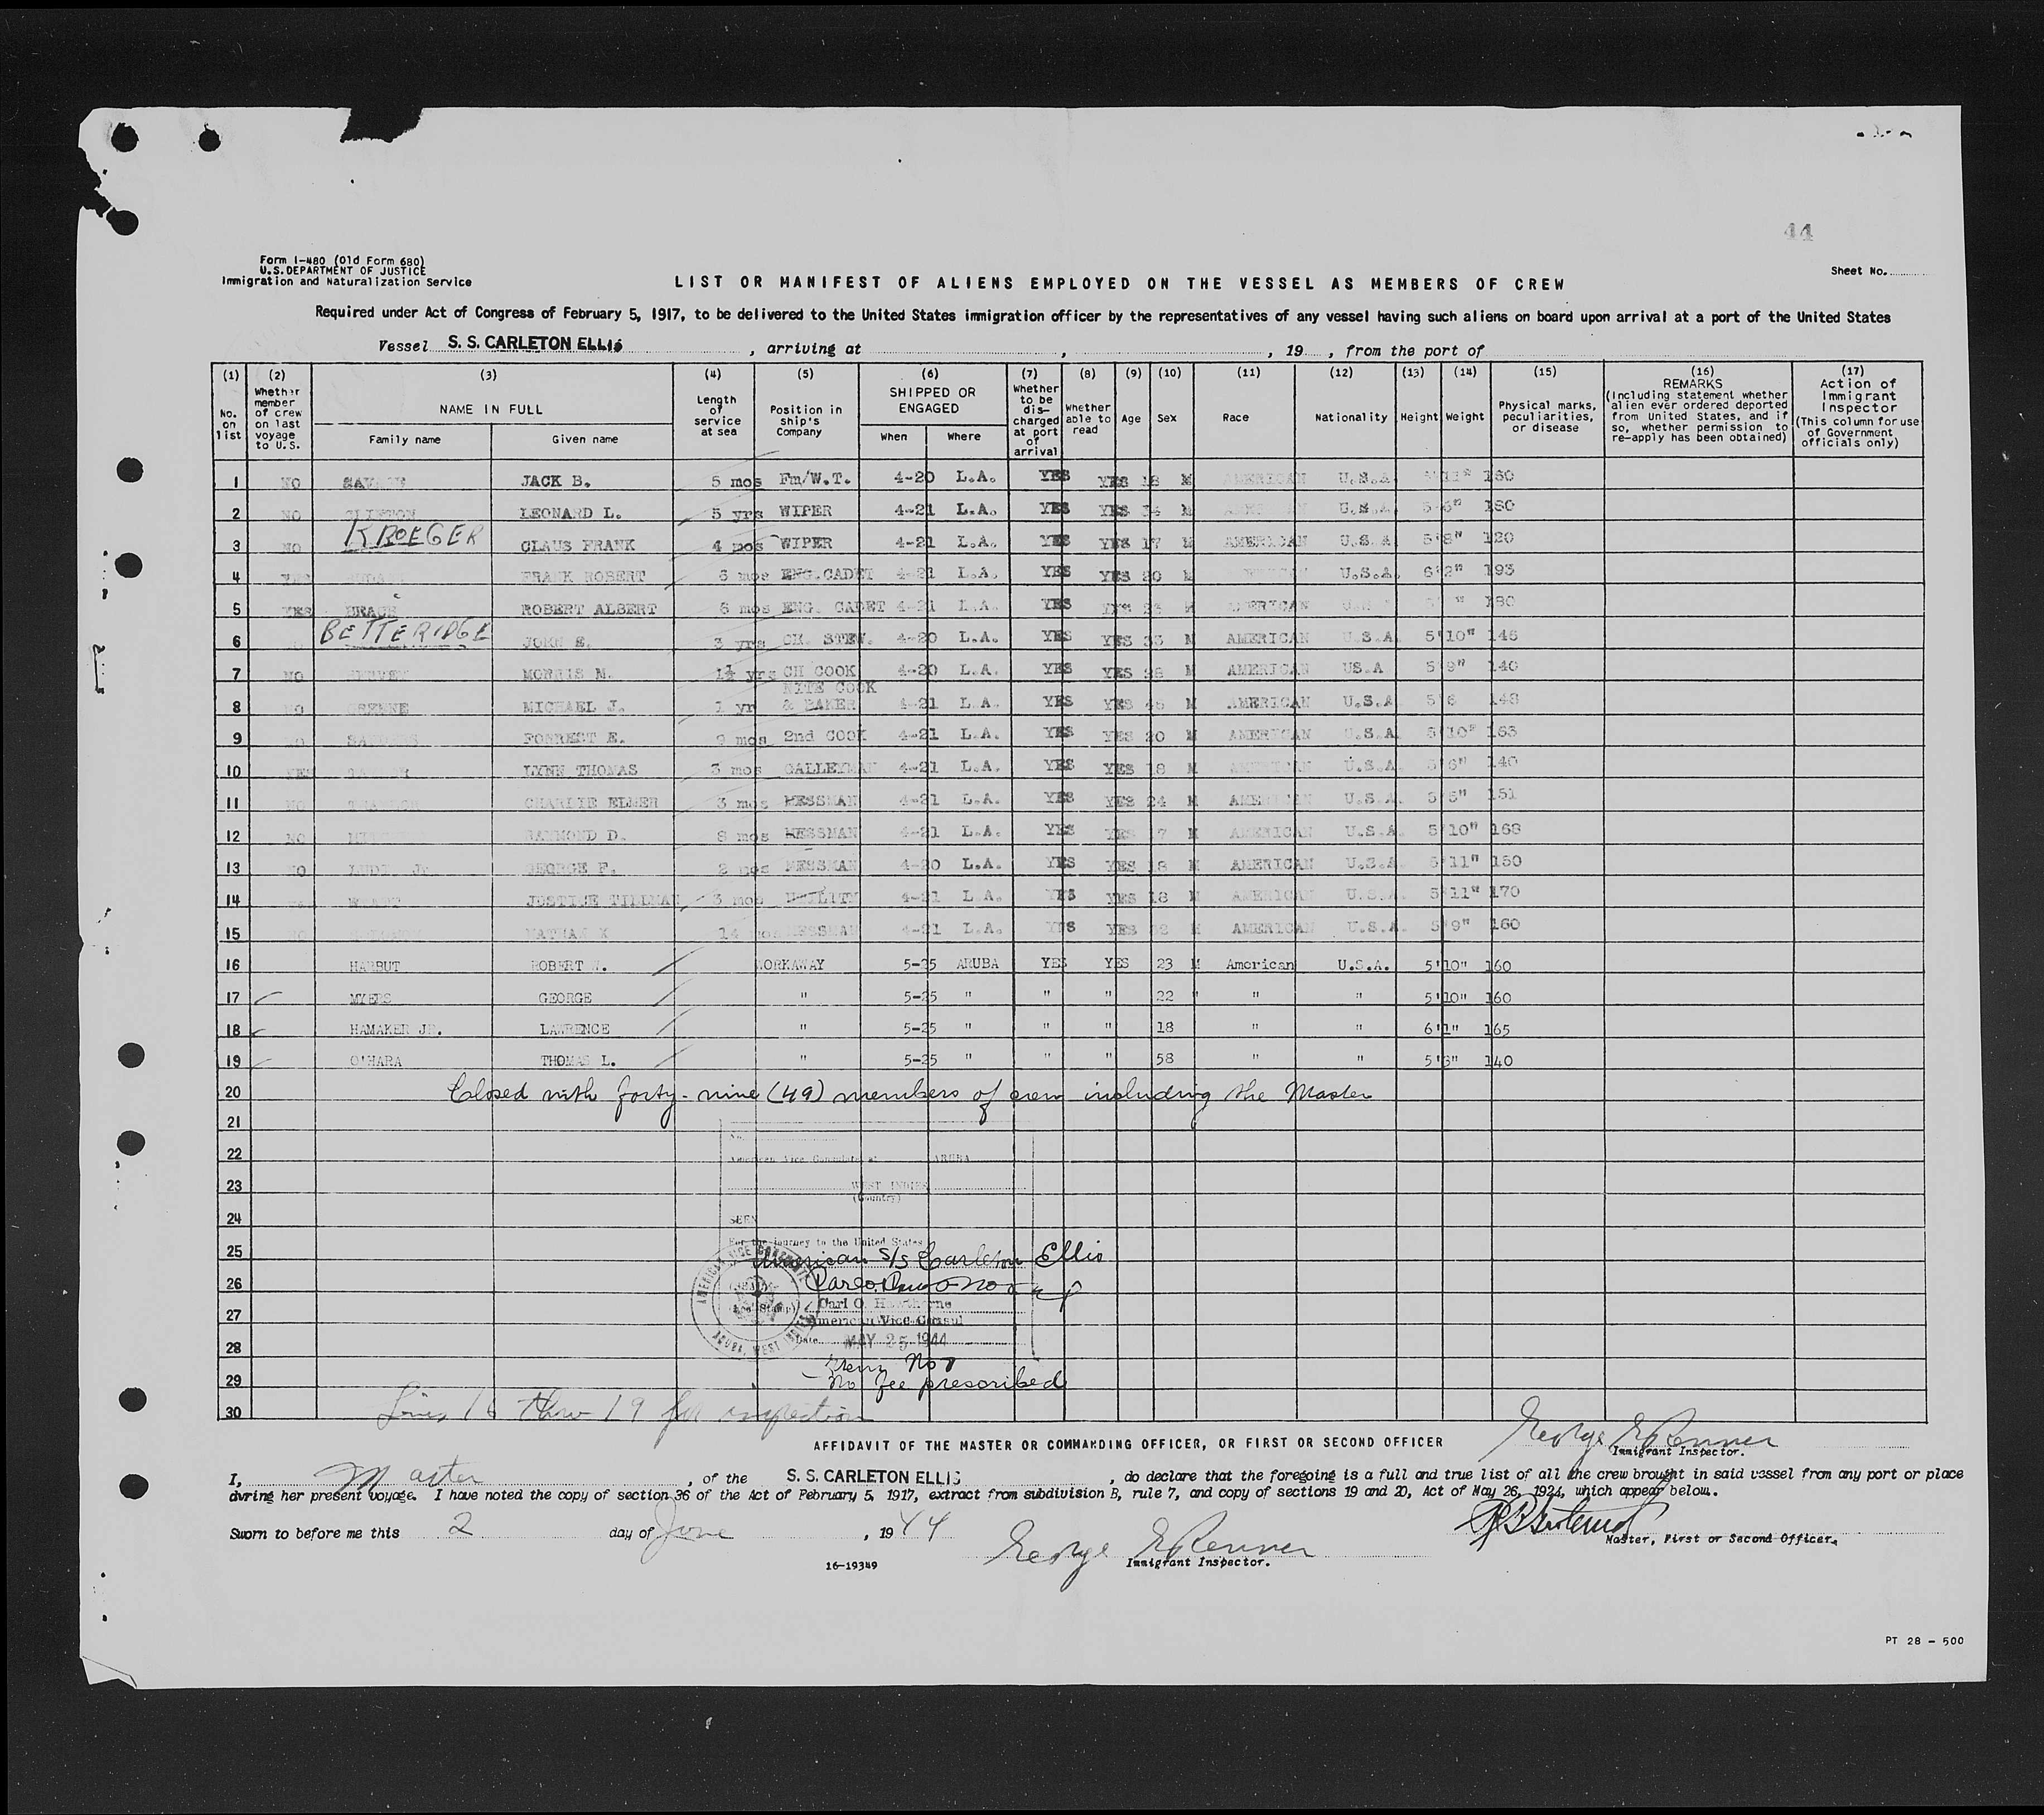 44
Form I-480 (Old Form 680)
U.S. DEPARTMENT OF JUSTICE
Immigration and Naturalization Service
Sheet No.
LIST OR MANIFEST OF ALIENS EMPLOYED ON THE VESSEL AS MEMBERS OF CREW
Required under Act of Congress of February 5, 1917, to be delivered to the United States immigration officer by the representatives of any vessel having such aliens on board upon arrival at a port of the United States
Vessel S. S. CARLETON ELLIS , arriving at , , 19 , from the port of
(1) (2) (3) (4) (5) (6) (7) (8) (9) (10) (11) (12) (13) (14) (15) (16) (17)
No. on list
Whether member of crew on last voyage to U.S.
NAME IN FULL
Family name Given name
Length of service at sea
Position in ship's Company
SHIPPED OR ENGAGED
When Where
Whether to be discharged at port of arrival
Whether able to read
Age
Sex
Race
Nationality
Height
Weight
Physical marks, peculiarities, or disease
REMARKS (Including statement whether alien ever ordered deported from United States, and if so, whether permission to re-apply has been obtained)
Action of Immigrant Inspector (This column for use of Government officials only)
1 NO SAVAGE JACK B. 5 mos Fm/W.T. 4-20 L.A. YES YES 18 M AMERICAN U.S.A 11" 160
2 NO CLIFTON LEONARD L. 5 yrs WIPER 4-21 L.A. YES YES 34 M U.S.A 5'6" 180
3 NO KROEGER CLAUS FRANK 4 mos WIPER 4-21 L.A. YES YES 17 M AMERICAN U.S.A 5'8" 120
4 YES FRANK ROBERT 6 mos ENG.CADET 4-21 L.A. YES YES 20 M U.S.A. 6'2" 193
5 YES ROBERT ALBERT 6 mos ENG. CADET 4-21 L.A. YES YES 23 M AMERICAN 180
6 BETTERIDGE JOHN E. 3 yrs CH. STEW. 4-20 L.A. YES YES 33 M AMERICAN U.S.A 5'10" 145
7 NO MORRIS M. 1½ yrs CH COOK 4-20 L.A. YES YES 28 M AMERICAN US.A 5'9" 140
8 NO GREENE MICHAEL J. 1 yr NITE COOK & BAKER 4-21 L.A. YES YES 45 M AMERICAN U.S.A 5'6 148
9 NO SANDERS FORREST E. 9 mos 2nd COOK 4-21 L.A. YES YES 20 M AMERICAN U.S.A 5'10" 163
10 YES LYNN THOMAS 3 mos GALLEYMAN 4-21 L.A. YES YES 18 M AMERICAN U.S.A. 5'6" 140
11 NO CHARLIE ELMER 3 mos MESSMAN 4-21 L.A. YES YES 24 M AMERICAN U.S.A. 5'5" 151
12 NO RAYMOND D. 8 mos MESSMAN 4-21 L.A. YES YES 17 M AMERICAN U.S.A. 5'10" 168
13 NO GEORGE F. 2 mos MESSMAN 4-20 L.A. YES YES 18 M AMERICAN U.S.A. 5'11" 150
14 JUSTICE TILLMAN 3 mos UTILITY 4-21 L.A. YES YES 18 M AMERICAN U.S.A. 5'11" 170
15 NO NATHAN 14 mos MESSMAN 4-21 L.A. YES YES M AMERICAN U.S.A. 5'9" 160
16 HARBUT ROBERT W. WORKAWAY 5-25 ARUBA YES YES 23 M American U.S.A. 5'10" 160
17 MYERS GEORGE " 5-25 " " " 22 " " " 5'10" 160
18 HAMAKER JR. LAWRENCE " 5-25 " " " 18 " " 6'1" 165
19 O'HARA THOMAS L. " 5-25 " " " 58 " " 5'3" 140
20 Closed with forty-nine (49) members of crew including the Master
21
22 American Vice Consulate at ARUBA
23 WEST INDIES
(Country)
24 SEEN
For the journey to the United States
25 American S/S Carleton Ellis
26
Carl O. Hawthorne
27 American Vice Consul
Date MAY 25 1944
AMERICAN VICE CONSULATE
ARUBA, WEST INDIES
28
No
29 No fee prescribed
30 Lines 16 thru 19 for inspection
AFFIDAVIT OF THE MASTER OR COMMANDING OFFICER, OR FIRST OR SECOND OFFICER
George E Renner
Immigrant Inspector.
I, Master , of the S. S. CARLETON ELLIS , do declare that the foregoing is a full and true list of all the crew brought in said vessel from any port or place
during her present voyage. I have noted the copy of section 36 of the Act of February 5, 1917, extract from subdivision B, rule 7, and copy of sections 19 and 20, Act of May 26, 1924, which appear below.
Sworn to before me this 2 day of June , 19 44
George E Renner
Immigrant Inspector.
Master, First or Second Officer.
16-19349
PT 28 - 500